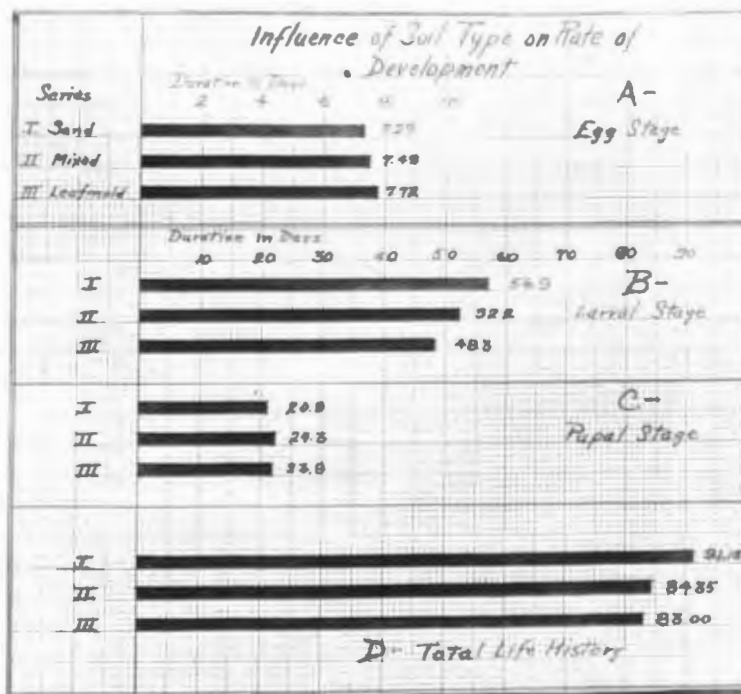 Influence of Soil Type on Rate of
Development
Series
Duration in Days
2 4 6 8 10
A-
Egg Stage
I Sand 7.29
II Mixed 7.48
III Leafmold 7.72
Duration in Days
10 20 30 40 50 60 70 80 90
B-
Larval Stage
I 56.9
II 52.2
III 48.3
C-
Pupal Stage
I 20.9
II
III
I
II 84.35
III 83.00
D- Total Life History